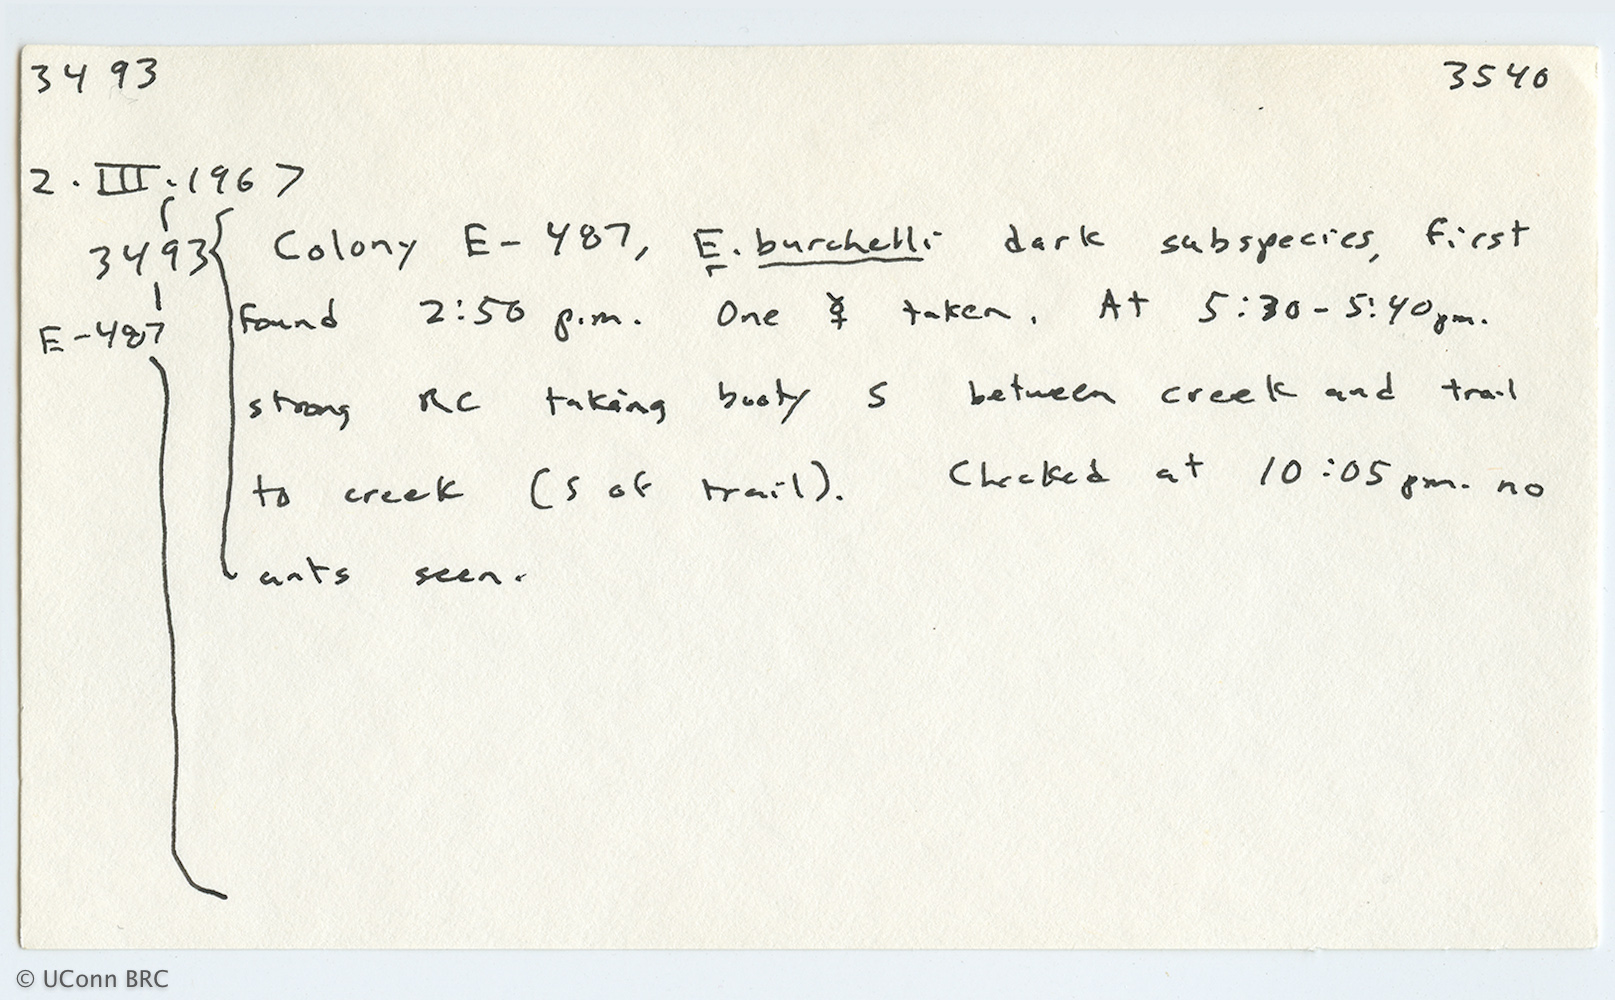 3493 3540
2.III.1967
3493 Colony E-487, E. burchelli dark subspecies, first
E-487 found 2:50 p.m. One ☿ taken. At 5:30-5:40 pm.
strong RC taking booty S between creek and trail
to creek (S of trail). Checked at 10:05 pm. no
ants seen.
© UConn BRC